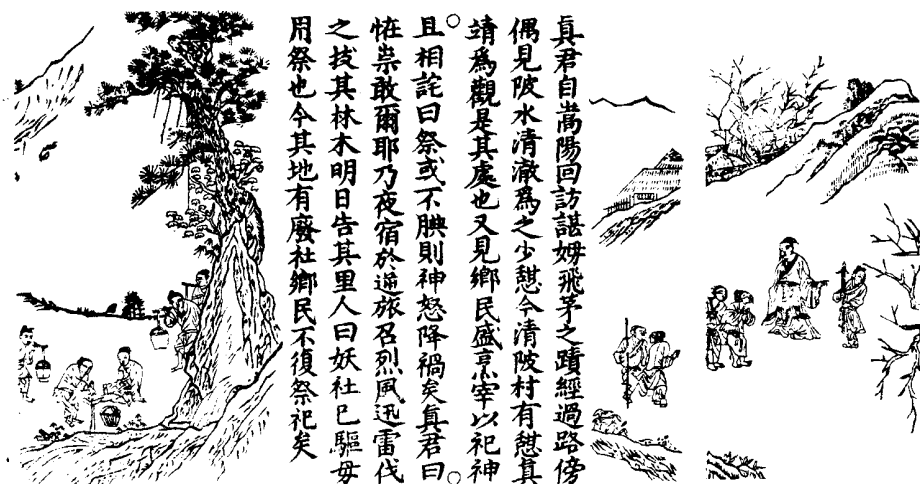 真君自嵩陽回訪諶姆飛茅之蹟經過路傍
偶見陂水清澈爲之少憇今清陂村有憇真
靖爲觀是其處也又見鄉民盛烹宰以祀神
且相詫曰祭或不腆則神怒降禍矣真君曰
恠祟敢爾耶乃夜宿於逆旅召烈風迅雷伐
之拔其林木明日告其里人曰妖社已驅毋
用祭也今其地有廢社鄉民不復祭祀矣